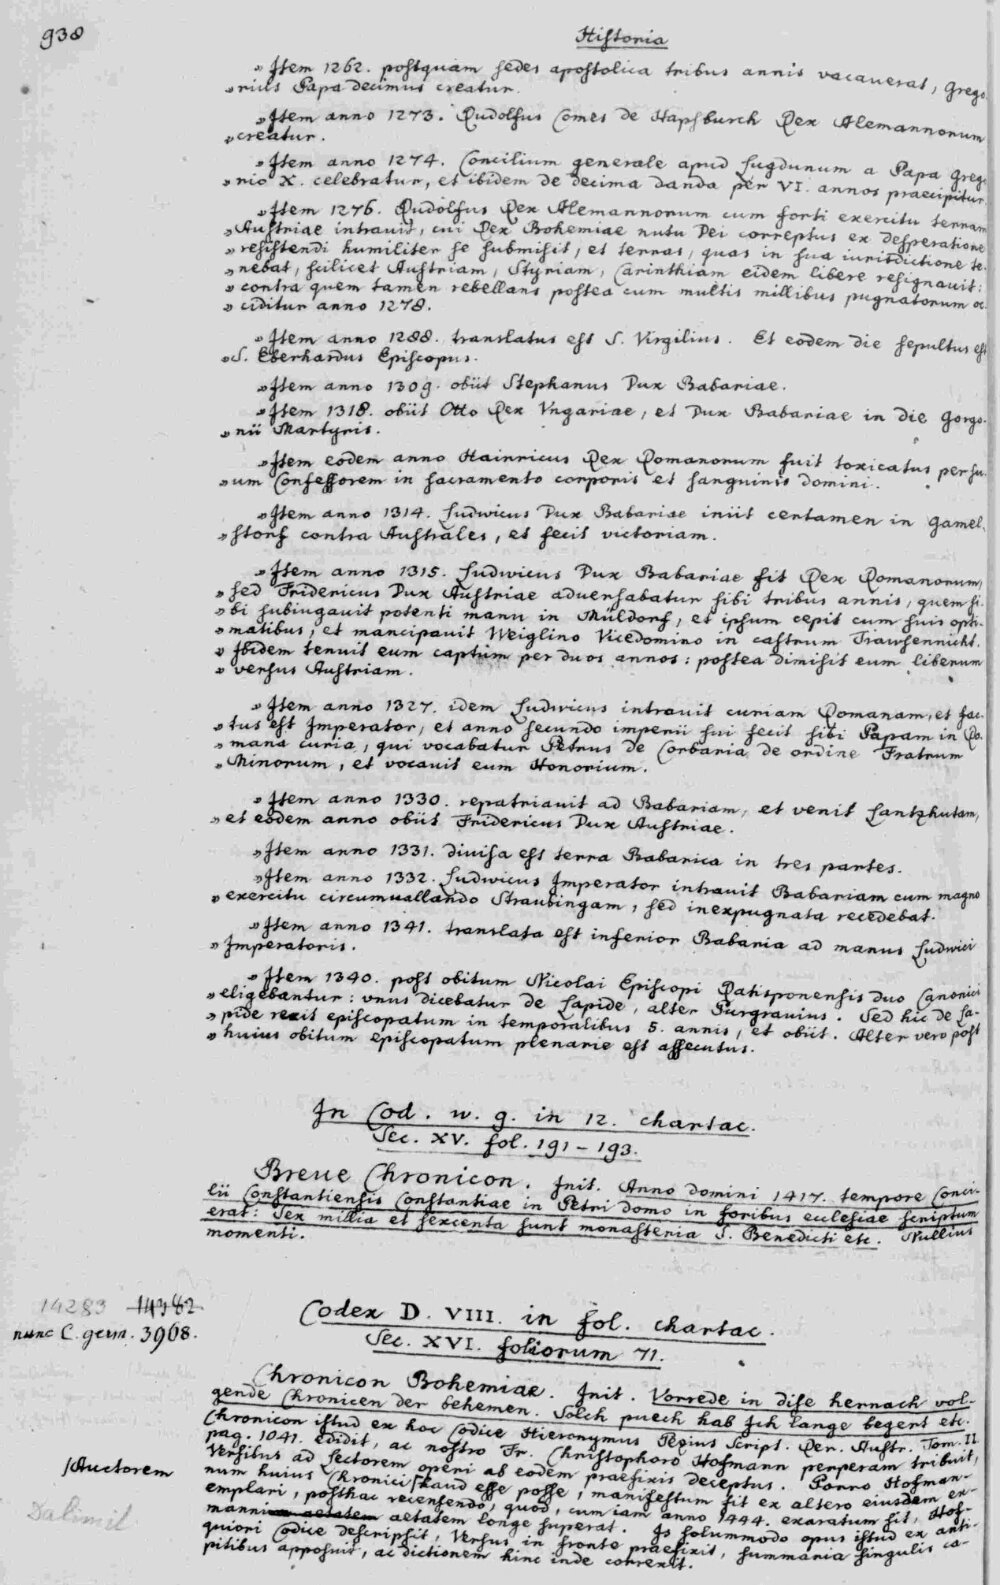 938
Historia
» Item 1262. postquam sedes apostolica tribus annis vacauerat, Grego-
» rius Papa decimus creatur.
» Item anno 1273. Rudolfus Comes de Hapsburch Rex Alemannorum
» creatur.
» Item anno 1274. Concilium generale apud Lugdunum a Papa Grego-
» rio X. celebratur, et ibidem de decima danda per VI. annos praecipitur.
» Item 1276. Rudolfus Rex Alemannorum cum forti exercitu terram
» Austriae intrauit, cui Rex Bohemiae nutu Dei correptus ex desperatione
» resistendi humiliter se submisit, et terras, quas in sua iurisdictione te-
» nebat, scilicet Austriam, Styriam, Carinthiam eidem libere resignauit:
» contra quem tamen rebellans postea cum multis millibus pugnatorum oc-
» ciditur anno 1278.
» Item anno 1288. translatus est S. Virgilius. Et eodem die sepultus est
» S. Eberhardus Episcopus.
» Item anno 1309. obiit Stephanus Dux Babariae.
» Item 1318. obiit Otto Rex Vngariae, et Dux Babariae in die Gorgo-
» nii Martyris.
» Item eodem anno Hainricus Rex Romanorum fuit toxicatus per su-
» um Confessorem in sacramento corporis et sanguinis domini.
» Item anno 1314. Ludwicus Dux Babariae iniit certamen in Gamel-
» storf contra Australes, et fecit victoriam.
» Item anno 1315. Ludwicus Dux Babariae fit Rex Romanorum,
» sed Fridericus Dux Austriae aduersabatur sibi tribus annis, quem si-
» bi subiugauit potenti manu in Müldorf, et ipsum cepit cum suis opti-
» matibus, et mancipauit Weiglino Vicedomino in castrum Trawsennicht.
» Ibidem tenuit eum captum per duos annos: postea dimisit eum liberum
» versus Austriam.
» Item anno 1327. idem Ludwicus intrauit curiam Romanam, et fac-
» tus est Imperator, et anno secundo imperii sui fecit sibi Papam in Ro-
» mana curia, qui vocabatur Petrus de Corbaria de ordine Fratrum
» Minorum, et vocauit eum Honorium.
» Item anno 1330. repatriauit ad Babariam, et venit Lantzhutam,
» et eodem anno obiit Fridericus Dux Austriae.
» Item anno 1331. diuisa est terra Babarica in tres partes.
» Item anno 1332. Ludwicus Imperator intrauit Babariam cum magno
» exercitu circumuallando Straubingam, sed inexpugnata recedebat.
» Item anno 1341. translata est inferior Babaria ad manus Ludwici
» Imperatoris.
» Item 1340. post obitum Nicolai Episcopi Ratisponensis duo Canonici
» eligebantur: vnus dicebatur de Lapide, alter Purgrauius. Sed hic de La-
» pide rexit episcopatum in temporalibus 5. annis, et obiit. Alter vero post
» huius obitum episcopatum plenarie est assecutus.
In Cod. w. g. in 12. chartac.
Sec. XV. fol. 191 - 193.
Breue Chronicon. Init. Anno domini 1417. tempore Conci-
lii Constantiensis Constantiae in Petri domo in foribus ecclesiae scriptum
erat: Sex millia et sexcenta sunt monasteria S. Benedicti etc. Nullius
momenti.
14283 14382
nunc C. germ. 3968.
Codex D. VIII. in fol. chartac.
Sec. XVI. foliorum 71.
Chronicon Bohemiae. Init. Vorrede in dise hernach vol-
gende Chronicen der behemen. Solch puech hab Ich lange begert etc.
Chronicon istud ex hoc Codice Hieronymus Pezius Script. Rer. Austr. Tom. II.
pag. 1041. edidit, ac nostro Fr. Christophoro Hofmann perperam tribuit,
Versibus ad Lectorem operi ab eodem praefixis deceptus. Porro Hofman-
num huius Chronici ſ haud esse posse, manifestum fit ex altero eiusdem ex-
ſ Auctorem
emplari, posthac recensendo, quod, cum iam anno 1444. exaratum sit, Hof-
Dalimil
manni aetatem longe superat. Is solummodo opus istud ex anti-
quiori Codice descripsit, Versus in fronte praefixit, summaria singulis ca-
pitibus apposuit, ac dictionem hinc inde correxit.